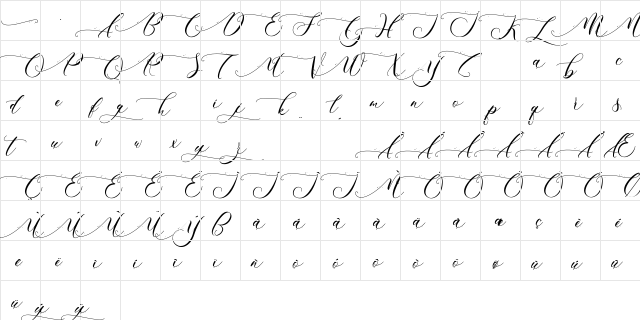 A B C D E F G H I J K L M N
O P Q R S T U V W X Y Z a b c
d e f g h i j k l m n o p q r s
t u v w x y z À Á Â Ã Ä Å Æ
Ç È É Ê Ë Ì Í Î Ï Ñ Ò Ó Ô Õ Ö Ø
Ù Ú Û Ü Ý ß à á â ã ä å æ ç è é
ê ë ì í î ï ñ ò ó ô õ ö ø ù ú û
ü ý ÿ